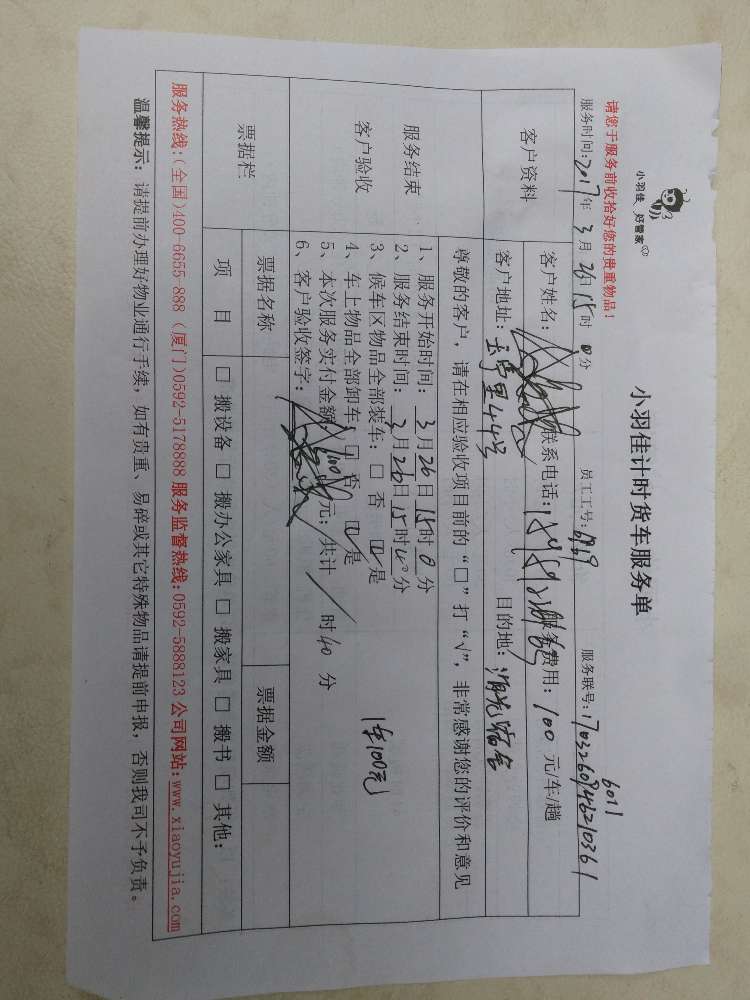 小羽佳 好管家
小羽佳计时货车服务单
请您于服务前收拾好您的贵重物品！
6011
服务时间：2017年 3月 26日 15时 0分 员工工号：6969 服务联号：170326094621036 1
客户资料
客户姓名： 联系电话： 服务费用：100 元/车/趟
客户地址： 里44号 目的地：
尊敬的客户，请在相应验收项目前的“□”打“√”，非常感谢您的评价和意见
服务结束
客户验收
1、服务开始时间：3月26日15时0分
2、服务结束时间：3月26日15时40分
3、候车区物品全部装车：□ 否 ☑是
4、车上物品全部卸车：□ 否 ☑是
5、本次服务实付金额：100元；共计 / 时40 分
6、客户验收签字：
1车100元
票据栏
票据名称 票据金额
项 目 □ 搬设备 □ 搬办公家具 □ 搬家具 □ 搬书 □ 其他：
服务热线：(全国)400-6655-888 (厦门)0592-5178888 服务监督热线：0592-5888123 公司网站：www.xiaoyujia.com
温馨提示：请提前办理好物业通行手续，如有贵重、易碎或其它特殊物品请提前申报，否则我司不予负责。